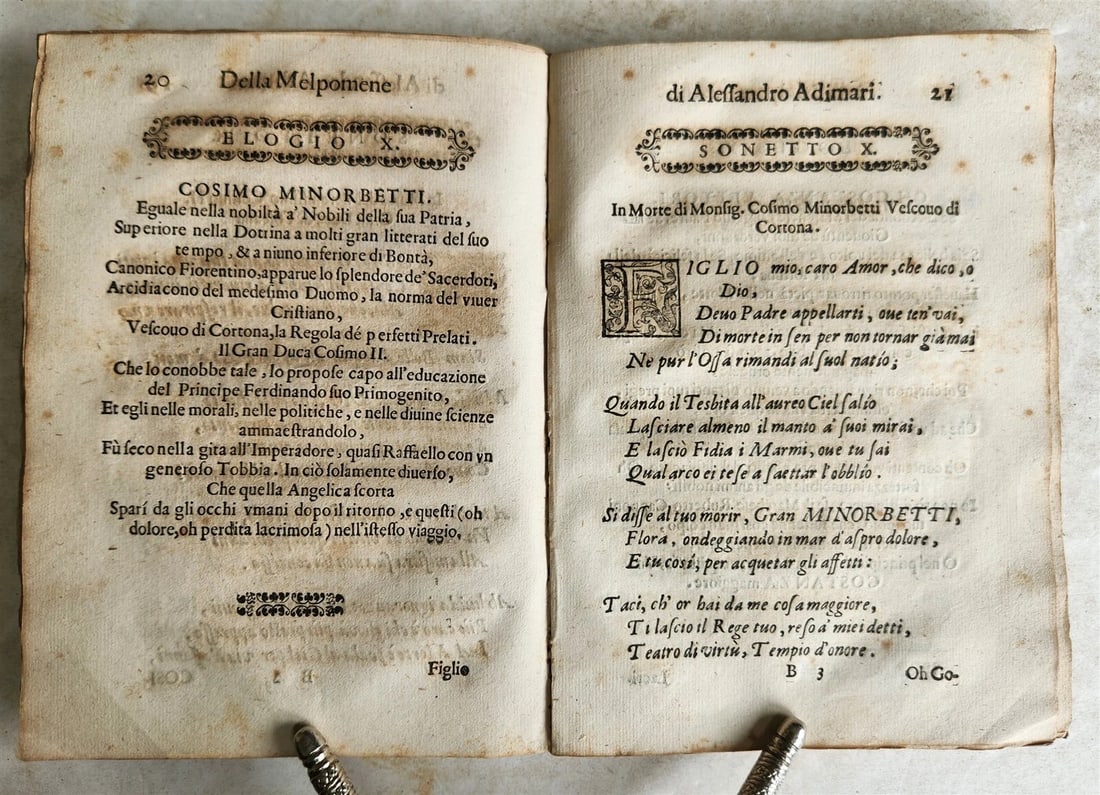 20 Della Melpomene
ELOGIO X.
COSIMO MINORBETTI.
Eguale nella nobiltà a' Nobili della ſua Patria,
Superiore nella Dottrina a molti gran litterati del ſuo
tempo, & a niuno inferiore di Bontà,
Canonico Fiorentino, apparue lo ſplendore de' Sacerdoti,
Arcidiacono del medeſimo Duomo, la norma del viuer
Criſtiano,
Veſcouo di Cortona, la Regola dé perfetti Prelati.
Il Gran Duca Coſimo II.
Che lo conobbe tale, lo propoſe capo all'educazione
del Principe Ferdinando ſuo Primogenito,
Et egli nelle morali, nelle politiche, e nelle diuine ſcienze
ammaeſtrandolo,
Fù ſeco nella gita all'Imperadore, quaſi Raffaello con vn
generoſo Tobbia. In ciò ſolamente diuerſo,
Che quella Angelica ſcorta
Sparí da gli occhi vmani dopo il ritorno, e queſti (oh
dolore, oh perdita lacrimoſa) nell'iſteſſo viaggio.
Figlio
di Aleſſandro Adimari. 21
SONETTO X.
In Morte di Monſig. Coſimo Minorbetti Veſcouo di
Cortona.
FIGLIO mio, caro Amor, che dico, o
Dio,
Deuo Padre appellarti, oue ten' vai,
Di morte in ſen per non tornar già mai
Ne pur l'Oſſa rimandi al ſuol natio;
Quando il Tesbita all'aureo Ciel ſalio
Laſciare almeno il manto a' ſuoi mirai,
E laſciò Fidia i Marmi, oue tu ſai
Qual arco ei teſe a ſaettar l'obblio.
Si diſſe al tuo morir, Gran MINORBETTI,
Flora, ondeggiando in mar d'aſpro dolore,
E tu cosí, per acquetar gli affetti:
Taci, ch' or hai da me coſa maggiore,
Ti laſcio il Rege tuo, reſo a' miei detti,
Teatro di virtù, Tempio d'onore.
B 3 Oh Go-